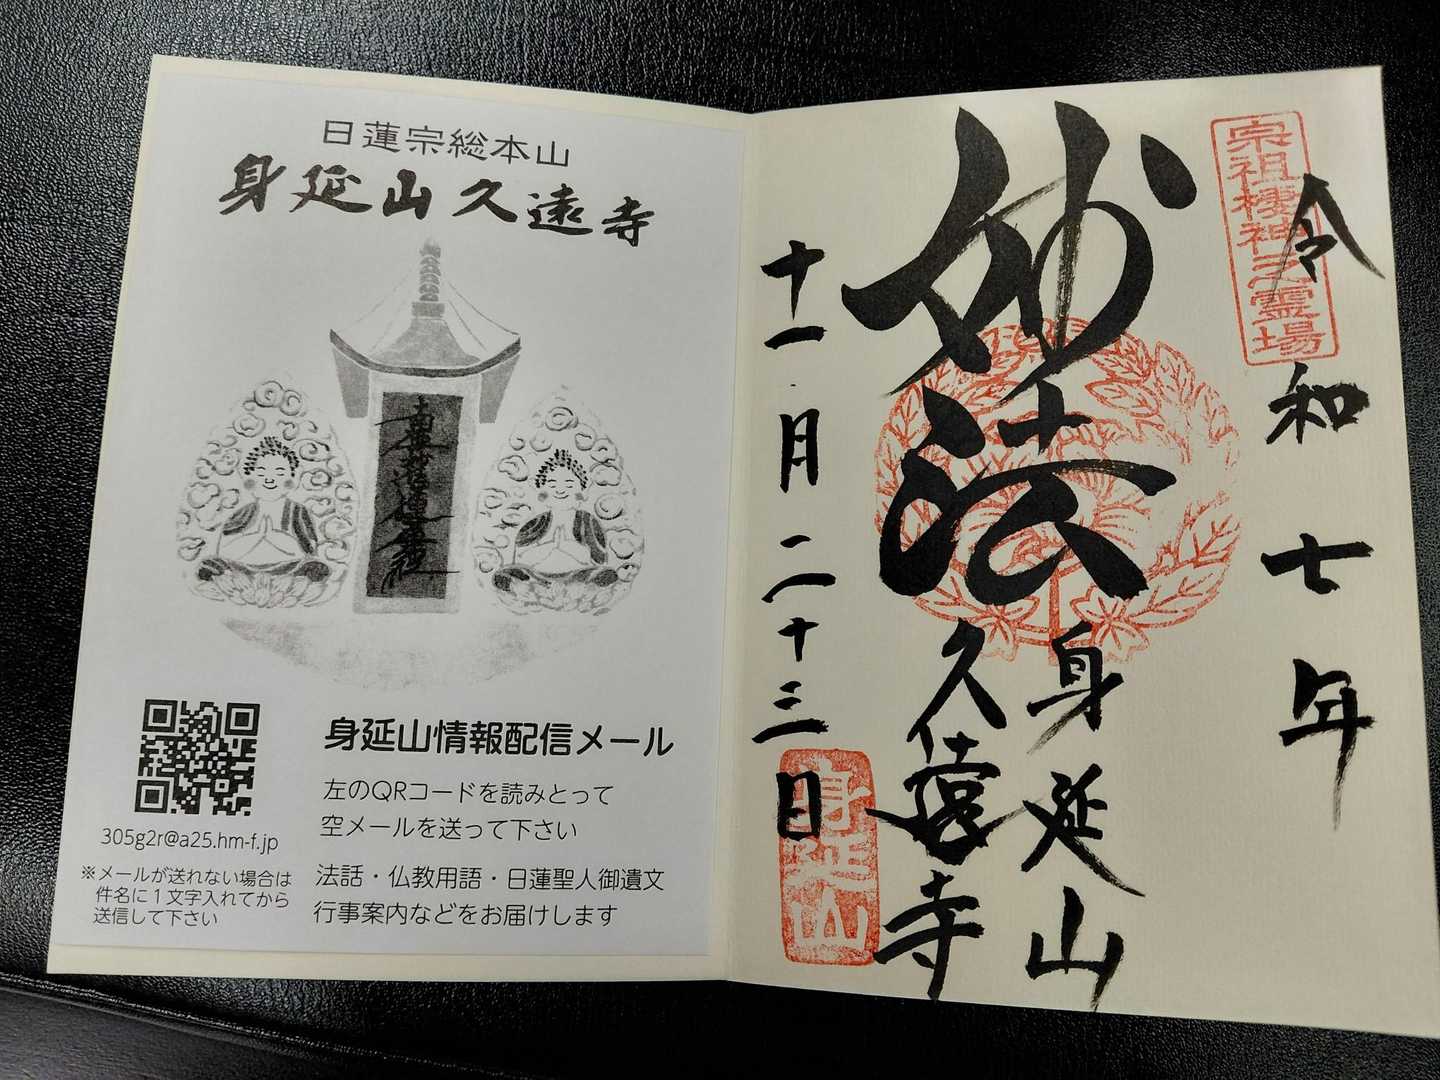 日蓮宗総本山
身延山久遠寺
南無妙法蓮華経
身延山情報配信メール
左のQRコードを読みとって
空メールを送って下さい
305g2r@a25.hm-f.jp
※メールが送れない場合は
件名に1文字入れてから
送信して下さい
法話・仏教用語・日蓮聖人御遺文
行事案内などをお届けします
宗祖棲神之霊場
令和七年
妙法
身延山
久遠寺
十一月二十三日
身延山